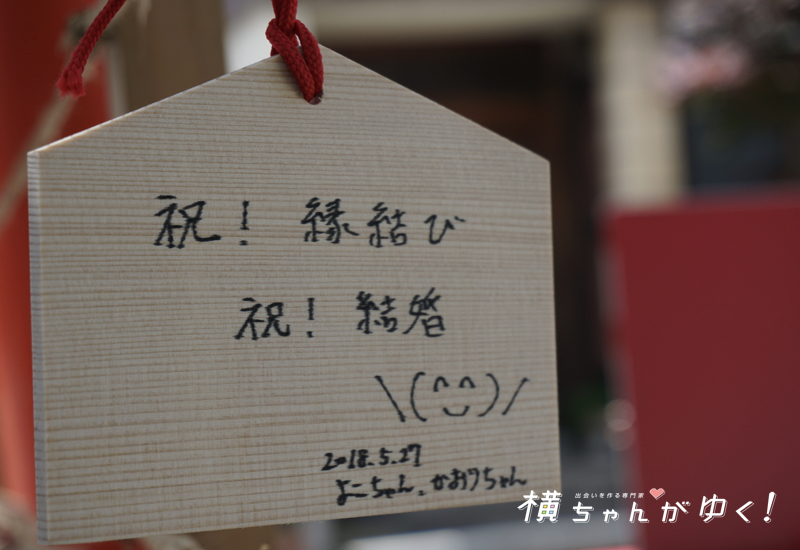 祝！縁結び
祝！結婚
\(^‿^)/
2018.5.27
よこちゃん、かおりちゃん
出会いを作る専門家
横ちゃんがゆく！